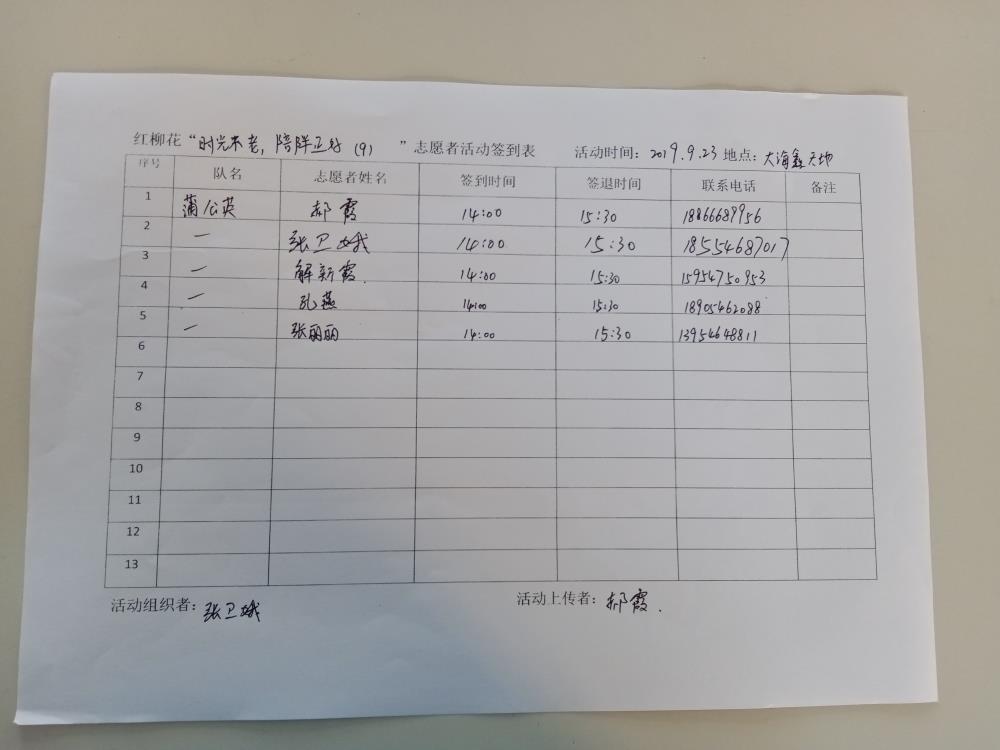 红柳花“时光不老，陪伴正好（9） ”志愿者活动签到表 活动时间：2019.9.23 地点：大海鑫天地
序号 队名 志愿者姓名 签到时间 签退时间 联系电话 备注
1 蒲公英 郝霞 14:00 15:30 18866689956
2 一 张卫娥 14:00 15:30 18554687017
3 一 解新霞. 14:00 15:30 15954750953
4 一 孔燕 14:00 15:30 18905462088
5 一 张丽丽 14:00 15:30 13954648811
6
7
8
9
10
11
12
13
活动组织者：张卫娥 活动上传者：郝霞.